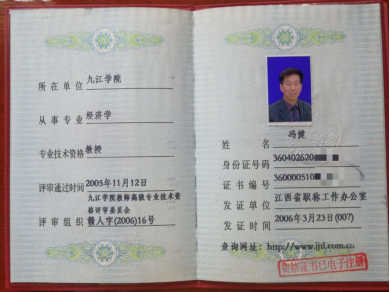 所在单位 九江学院
从事专业 经济学
专业技术资格 教授
评审通过时间 2005年11月12日
九江学院教师高级专业技术资
格评审委员会
评审组织 赣人字(2006)16号
姓名 冯健
身份证号码 360402620
证书编号 360000510
发证单位 江西省职称工作办公室
发证时间 2006年3月23日(007)
查询网址:http://www.jjtl.com.cn
职称证书已电子注册